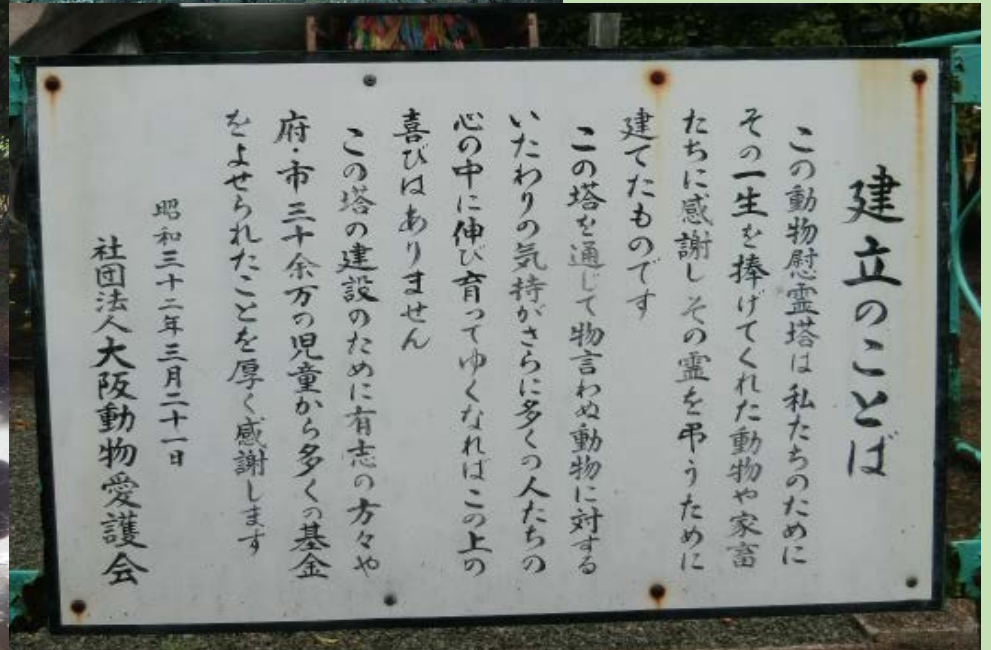 建立のことば
この動物慰霊塔は 私たちのために
その一生を捧げてくれた動物や家畜
たちに感謝し その霊を弔うために
建てたものです
この塔を通じて物言わぬ動物に対する
いたわりの気持がさらに多くの人たちの
心の中に伸び育ってゆくなればこの上の
喜びはありません
この塔の建設のために有志の方々や
府・市 三十余万の児童から多くの基金
をよせられたことを厚く感謝します
昭和三十二年三月二十一日
社団法人大阪動物愛護会